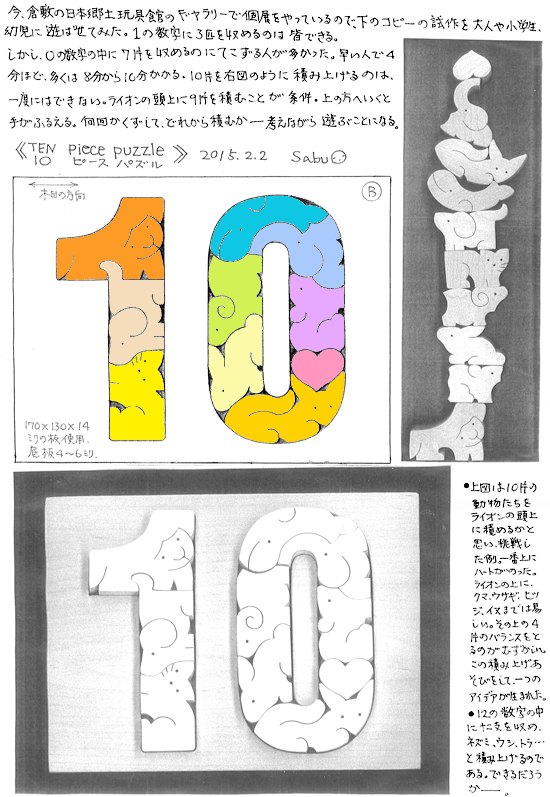 今、倉敷の日本郷土玩具館のギャラリーで個展をやっているので、下のコピーの試作を大人や小学生、
幼児に遊ばせてみた。1の数字に3匹を収めるのは皆できる。
しかし、0の数字の中に7片を収めるのにてこずる人が多かった。早い人で4
分ほど、多くは8分から10分かかる。10片を右図のように積み上げるのは、
一度にはできない。ライオンの頭上に9片を積むことが条件。上の方へいくと
手がふるえる。何回かくずして、どれから積むか──考えながら遊ぶことになる。
《TEN Piece puzzle》 2015.2.2 Sabu
10 ピース パズル
木目の方向
B
170×130×14
ミリの板使用.
底板4〜6ミリ.
●上図は10片の
動物たちを
ライオンの頭上
に積めるかと
思い、挑戦し
た例。一番上に
ハートがのった。
ライオンの上に、
クマ、ウサギ、ヒツ
ジ、イヌまでは易
しい。その上の4
片のバランスをと
るのがむずかしい。
この積み上げあ
そびをして、一つの
アイデアが生まれた。
●12の数字の中
に十二支を収め、
ネズミ、ウシ、トラ…
と積み上げるので
ある。できるだろう
か──。